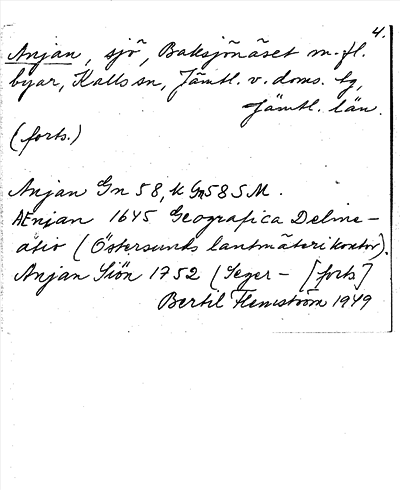 4.
Anjan, sjö, Baksjönäset m. fl.
byar, Kalls sn, Jämtl. v. doms. tg,
Jämtl. län.
(forts.)
Anjan Gn 58, k Gn 58 S M.
AEnjan 1645 Geografica Deline-
atio (Östersunds lantmäterikontor).
Anjan Siön 1752 (Seger- [forts]
Bertil Flemström 1949